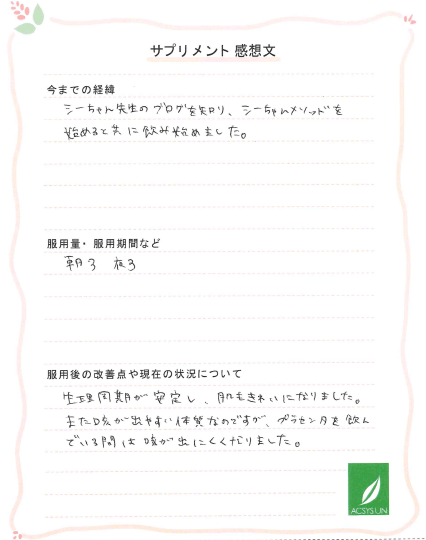 サプリメント 感想文
今までの経緯
シーちゃん先生のブログを知り、シーちゃんメソッドを
始めると共に飲み始めました。
服用量・服用期間など
朝3 夜3
服用後の改善点や現在の状況について
生理周期が安定し、肌もきれいになりました。
また咳が出やすい体質なのですが、プラセンタを飲ん
でいる間は咳が出にくくなりました。
ACSYSLIN